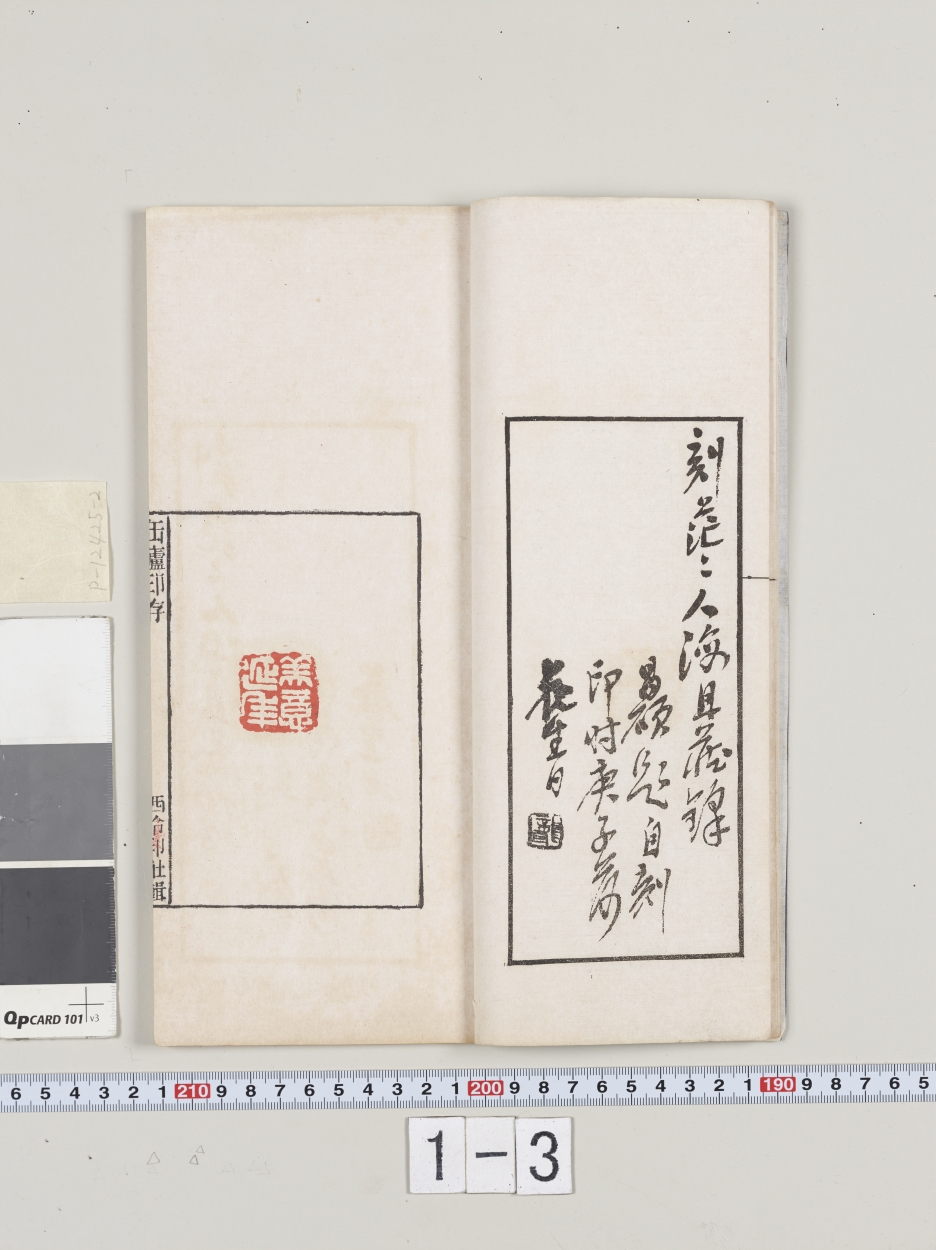 刻茫〻人海且藏鋒
昌碩題自刻
印時庚子荷
花生日
美意延年
缶廬印存
西泠印社輯
P-12425-2
QpCARD 101 v3
6 5 4 3 2 1 210 9 8 7 6 5 4 3 2 1 200 9 8 7 6 5 4 3 2 1 190 9 8 7 6 5
1-3